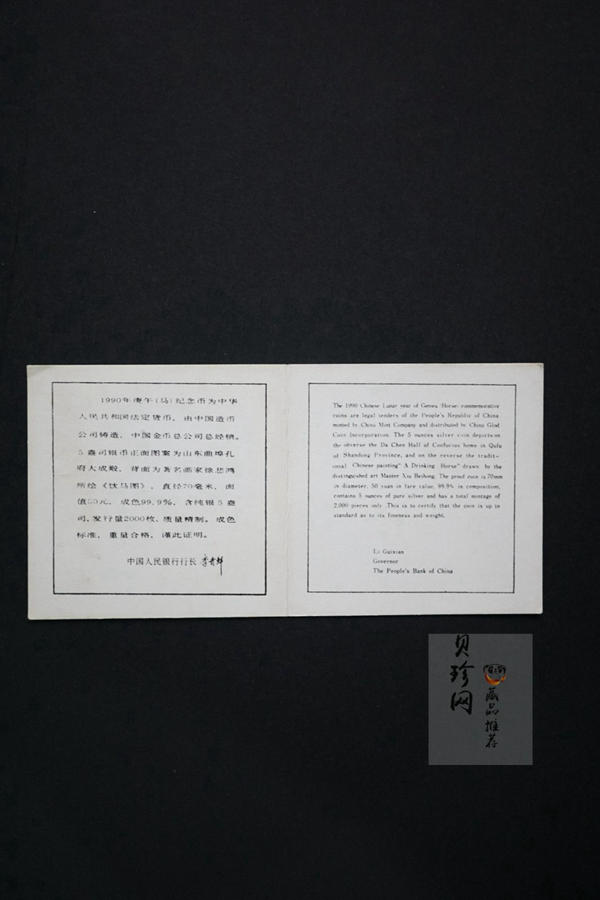 1990年庚午(马)纪念币为中华
人民共和国法定货币，由中国造币
公司铸造，中国金币总公司总经销。
5盎司银币正面图案为山东曲埠孔
府大成殿，背面为著名画家徐悲鸿
所绘《饮马图》。直径70毫米，面
值50元，成色99.9%，含纯银5盎
司，发行量2000枚、质量精制。成色
标准，重量合格，谨此证明。
中国人民银行行长 李贵鲜
The 1990 Chinese Lunar year of Gengu (Horse) commemorative
coins are legal tenders of the People's Republic of China
minted by China Mint Company and distributed by China Glod
Coin Incorporation. The 5 ounces silver coin depicts on
the obverse the Da Chen Hall of Confucius home in Qufu
of Shandong Province, and on the reverse the tradit-
ional Chinese painting" A Drinking Horse" drawn by the
distinguished art Master Xiu Beihong. The proof coin is 70mm
in diameter, 50 yuan in face value, 99.9% in composition,
contains 5 ounces of pure silver and has a total mintage of
2,000 pieces only. This is to certify that the coin is up to
standard as to its fineness and weight.
Li Guixian
Governor
The People's Bank of China
贝珍网
藏品推荐